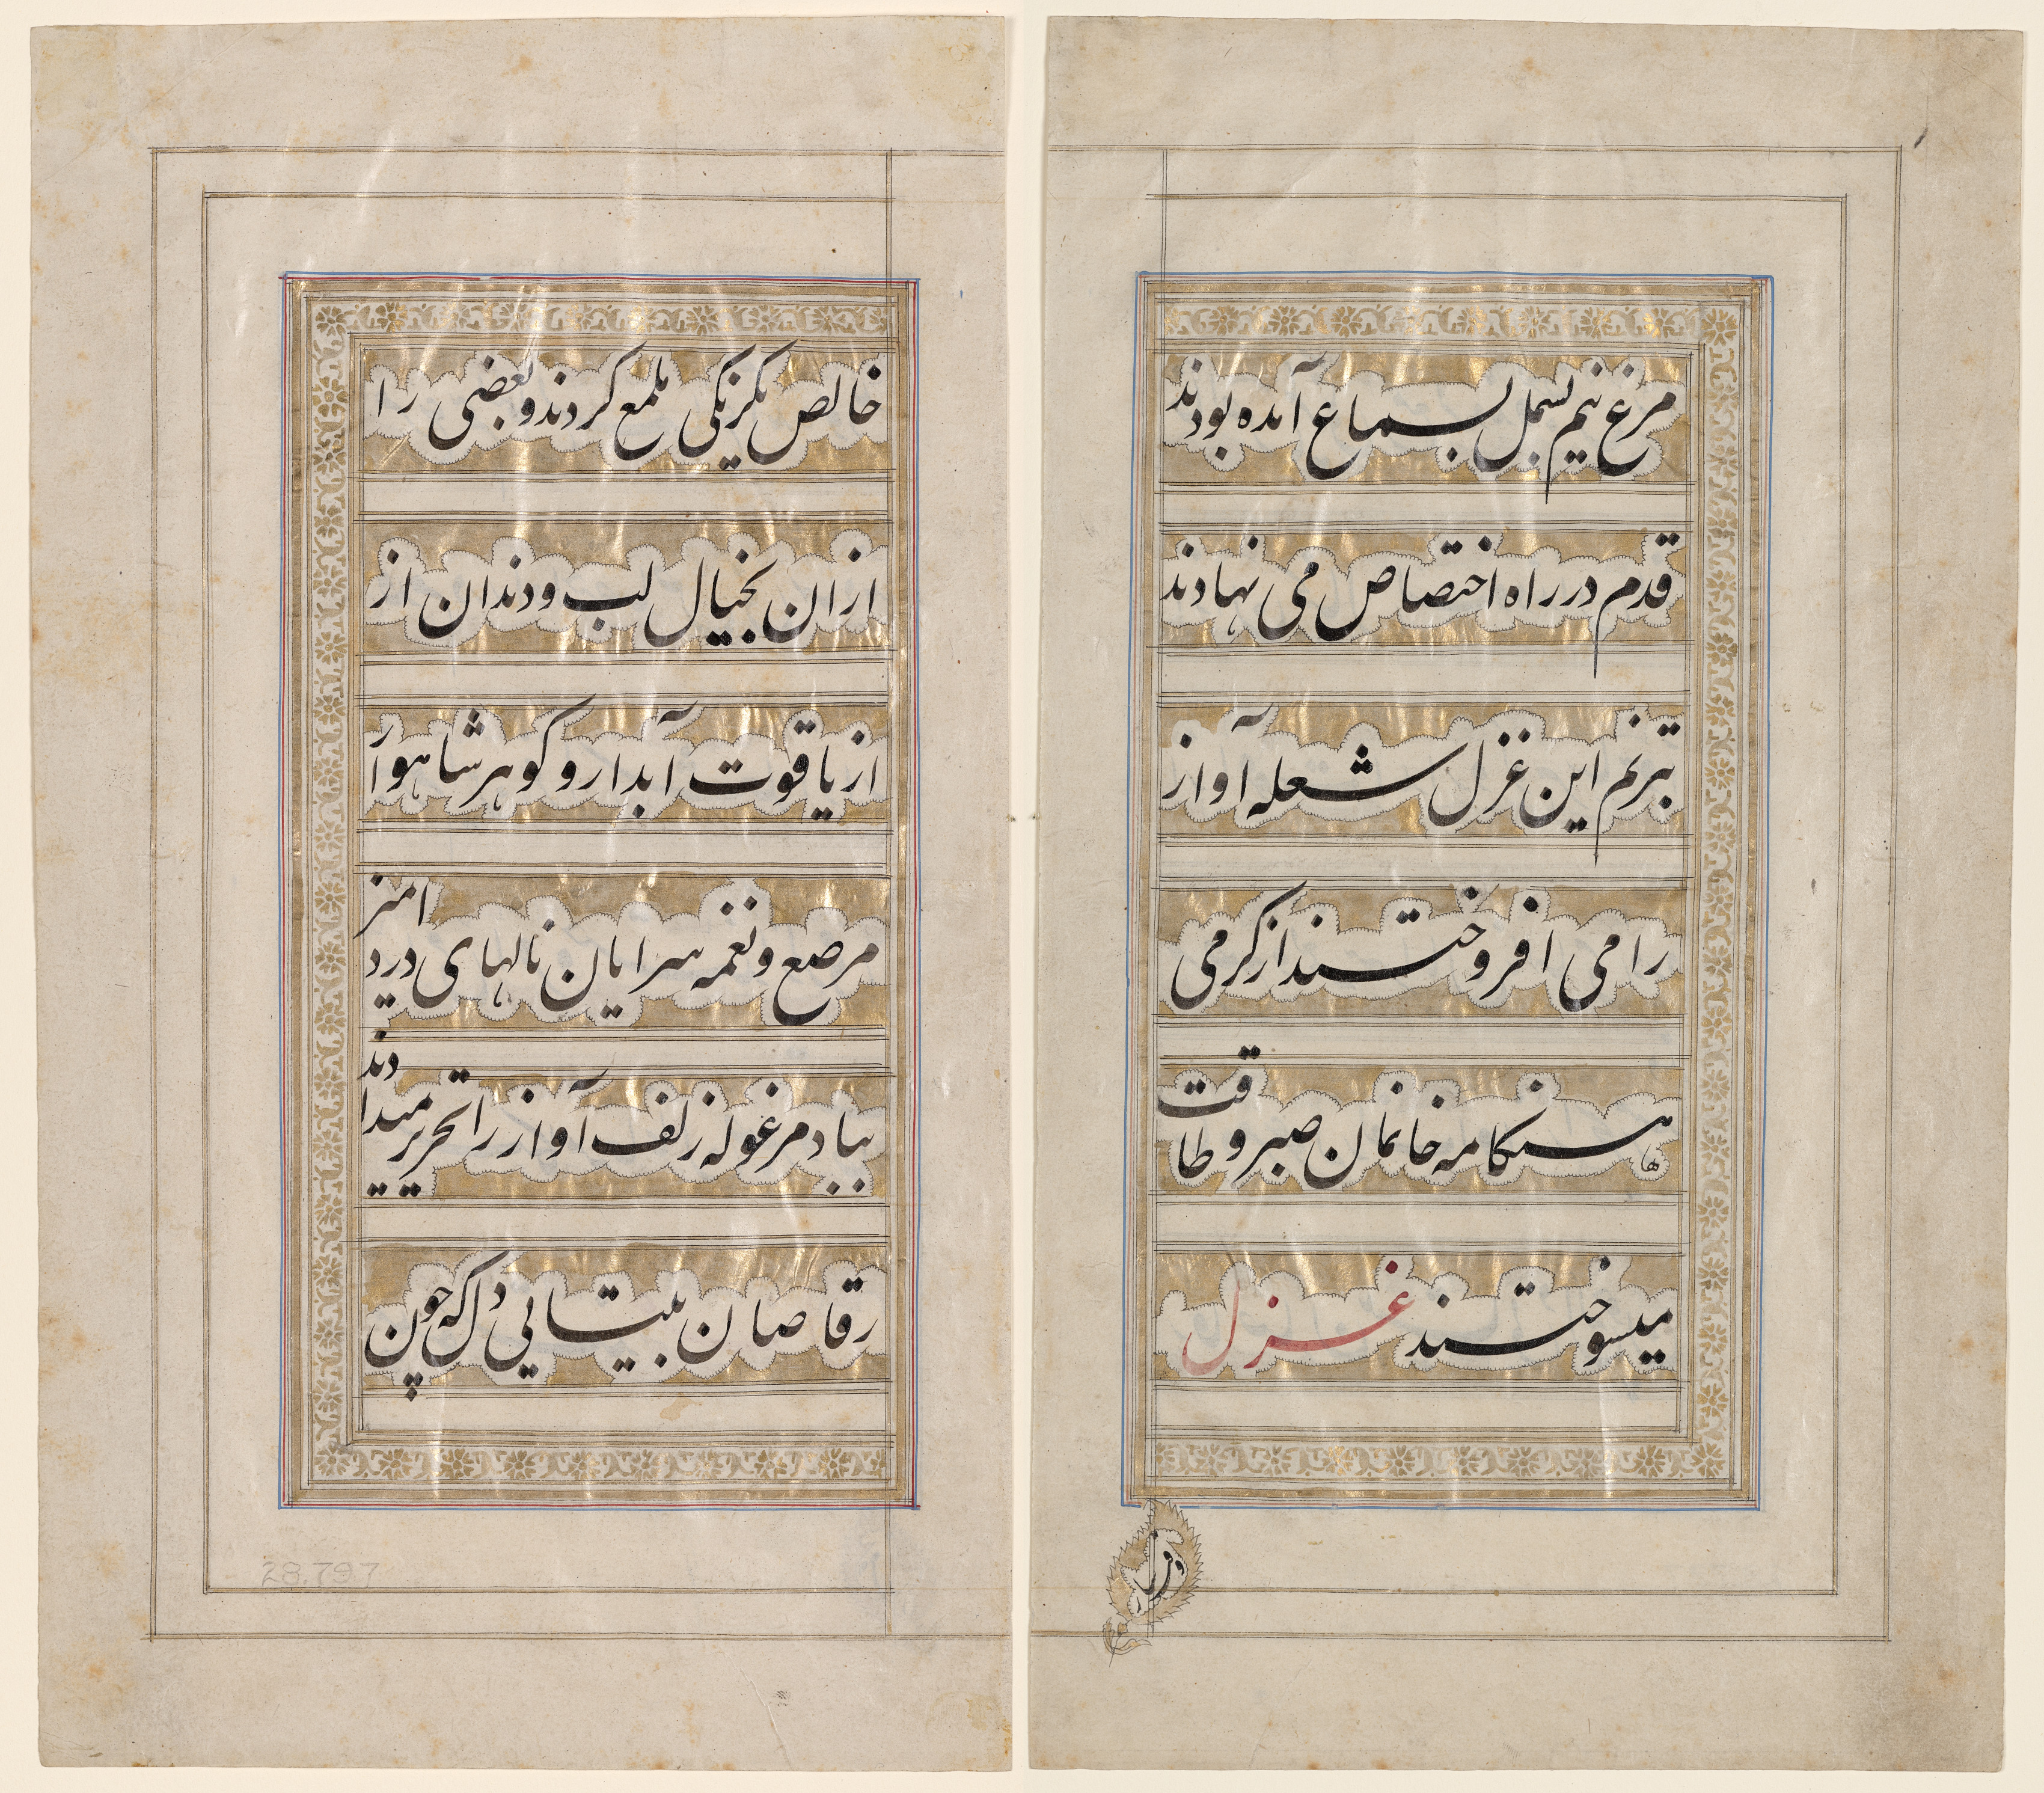 خالص یکرنکی ملمع کردند و بعضی را
ازان بخیال لب و دندان از
از یاقوت آبدار و کوهر شاهوار
مرصع و نغمه سرایان نالهای درد امیز
بیاد مرغوله زلف آواز را تحریر میدادند
رقاصان به بیتابی دل که چون
28.797
مرغ نیم بسمل بسماع آمده بودند
قدم در راه اختصاص می نهادند
بترنم این غزل شعله آواز
را می افروختند از کرمی
هنکامه خانمان صبر و طاقت
میسوختند غزل